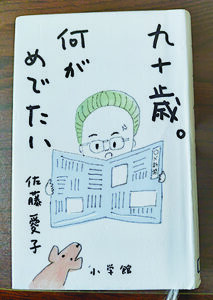 九十歳。
何が
めでたい
佐藤愛子
小学館